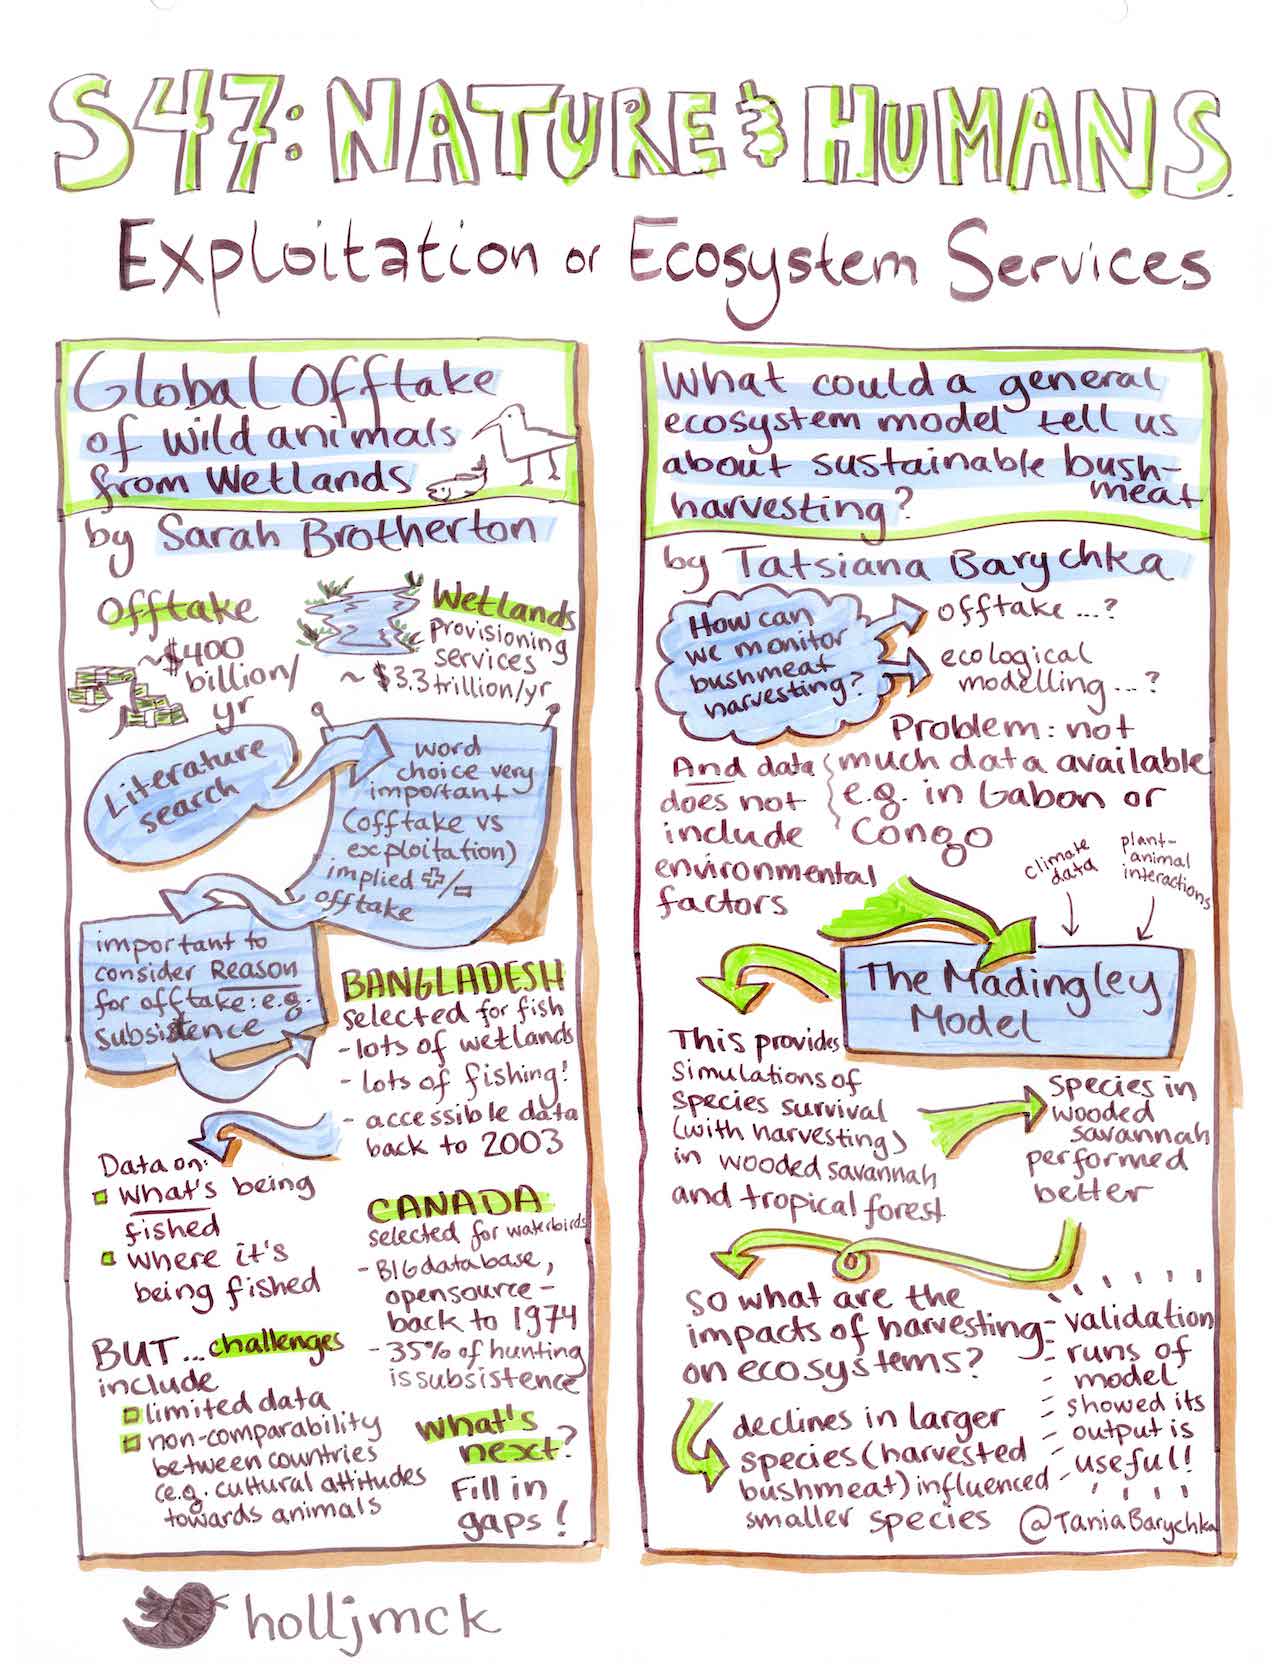 S47: NATURE & HUMANS
Exploitation or Ecosystem Services
Global Offtake
of wild animals
from Wetlands
by Sarah Brotherton
Offtake
~$400
billion/
yr
Wetlands
provisioning
services
~ $3.3 trillion/yr
Literature
search
word
choice very
important
(offtake vs
exploitation)
implied +/-
offtake
important to
consider Reason
for offtake: e.g.
subsistence
BANGLADESH
selected for fish
- lots of wetlands
- lots of fishing!
- accessible data
back to 2003
Data on:
what's being
fished
where it's
being fished
CANADA
selected for waterbirds
- BIG database,
opensource -
back to 1974
- 35% of hunting
is subsistence
BUT... challenges
include
limited data
non-comparability
between countries
(e.g. cultural attitudes
towards animals
What's
next?
Fill in
gaps!
What could a general
ecosystem model tell us
about sustainable bush-
meat
harvesting?
by Tatsiana Barychka
How can
we monitor
bushmeat
harvesting?
offtake ...?
ecological
modelling ...?
Problem: not
much data available
e.g. in Gabon or
Congo
And data
does not
include
environmental
factors
climate
data
plant-
animal
interactions
The Madingley
Model
This provides
simulations of
species survival
(with harvesting)
in wooded savannah
and tropical forest
Species in
wooded
savannah
performed
better
So what are the
impacts of harvesting
on ecosystems?
validation
runs of
model
showed its
output is
useful!
declines in larger
species (harvested
bushmeat) influenced
smaller species
@TaniaBarychka
holljmck